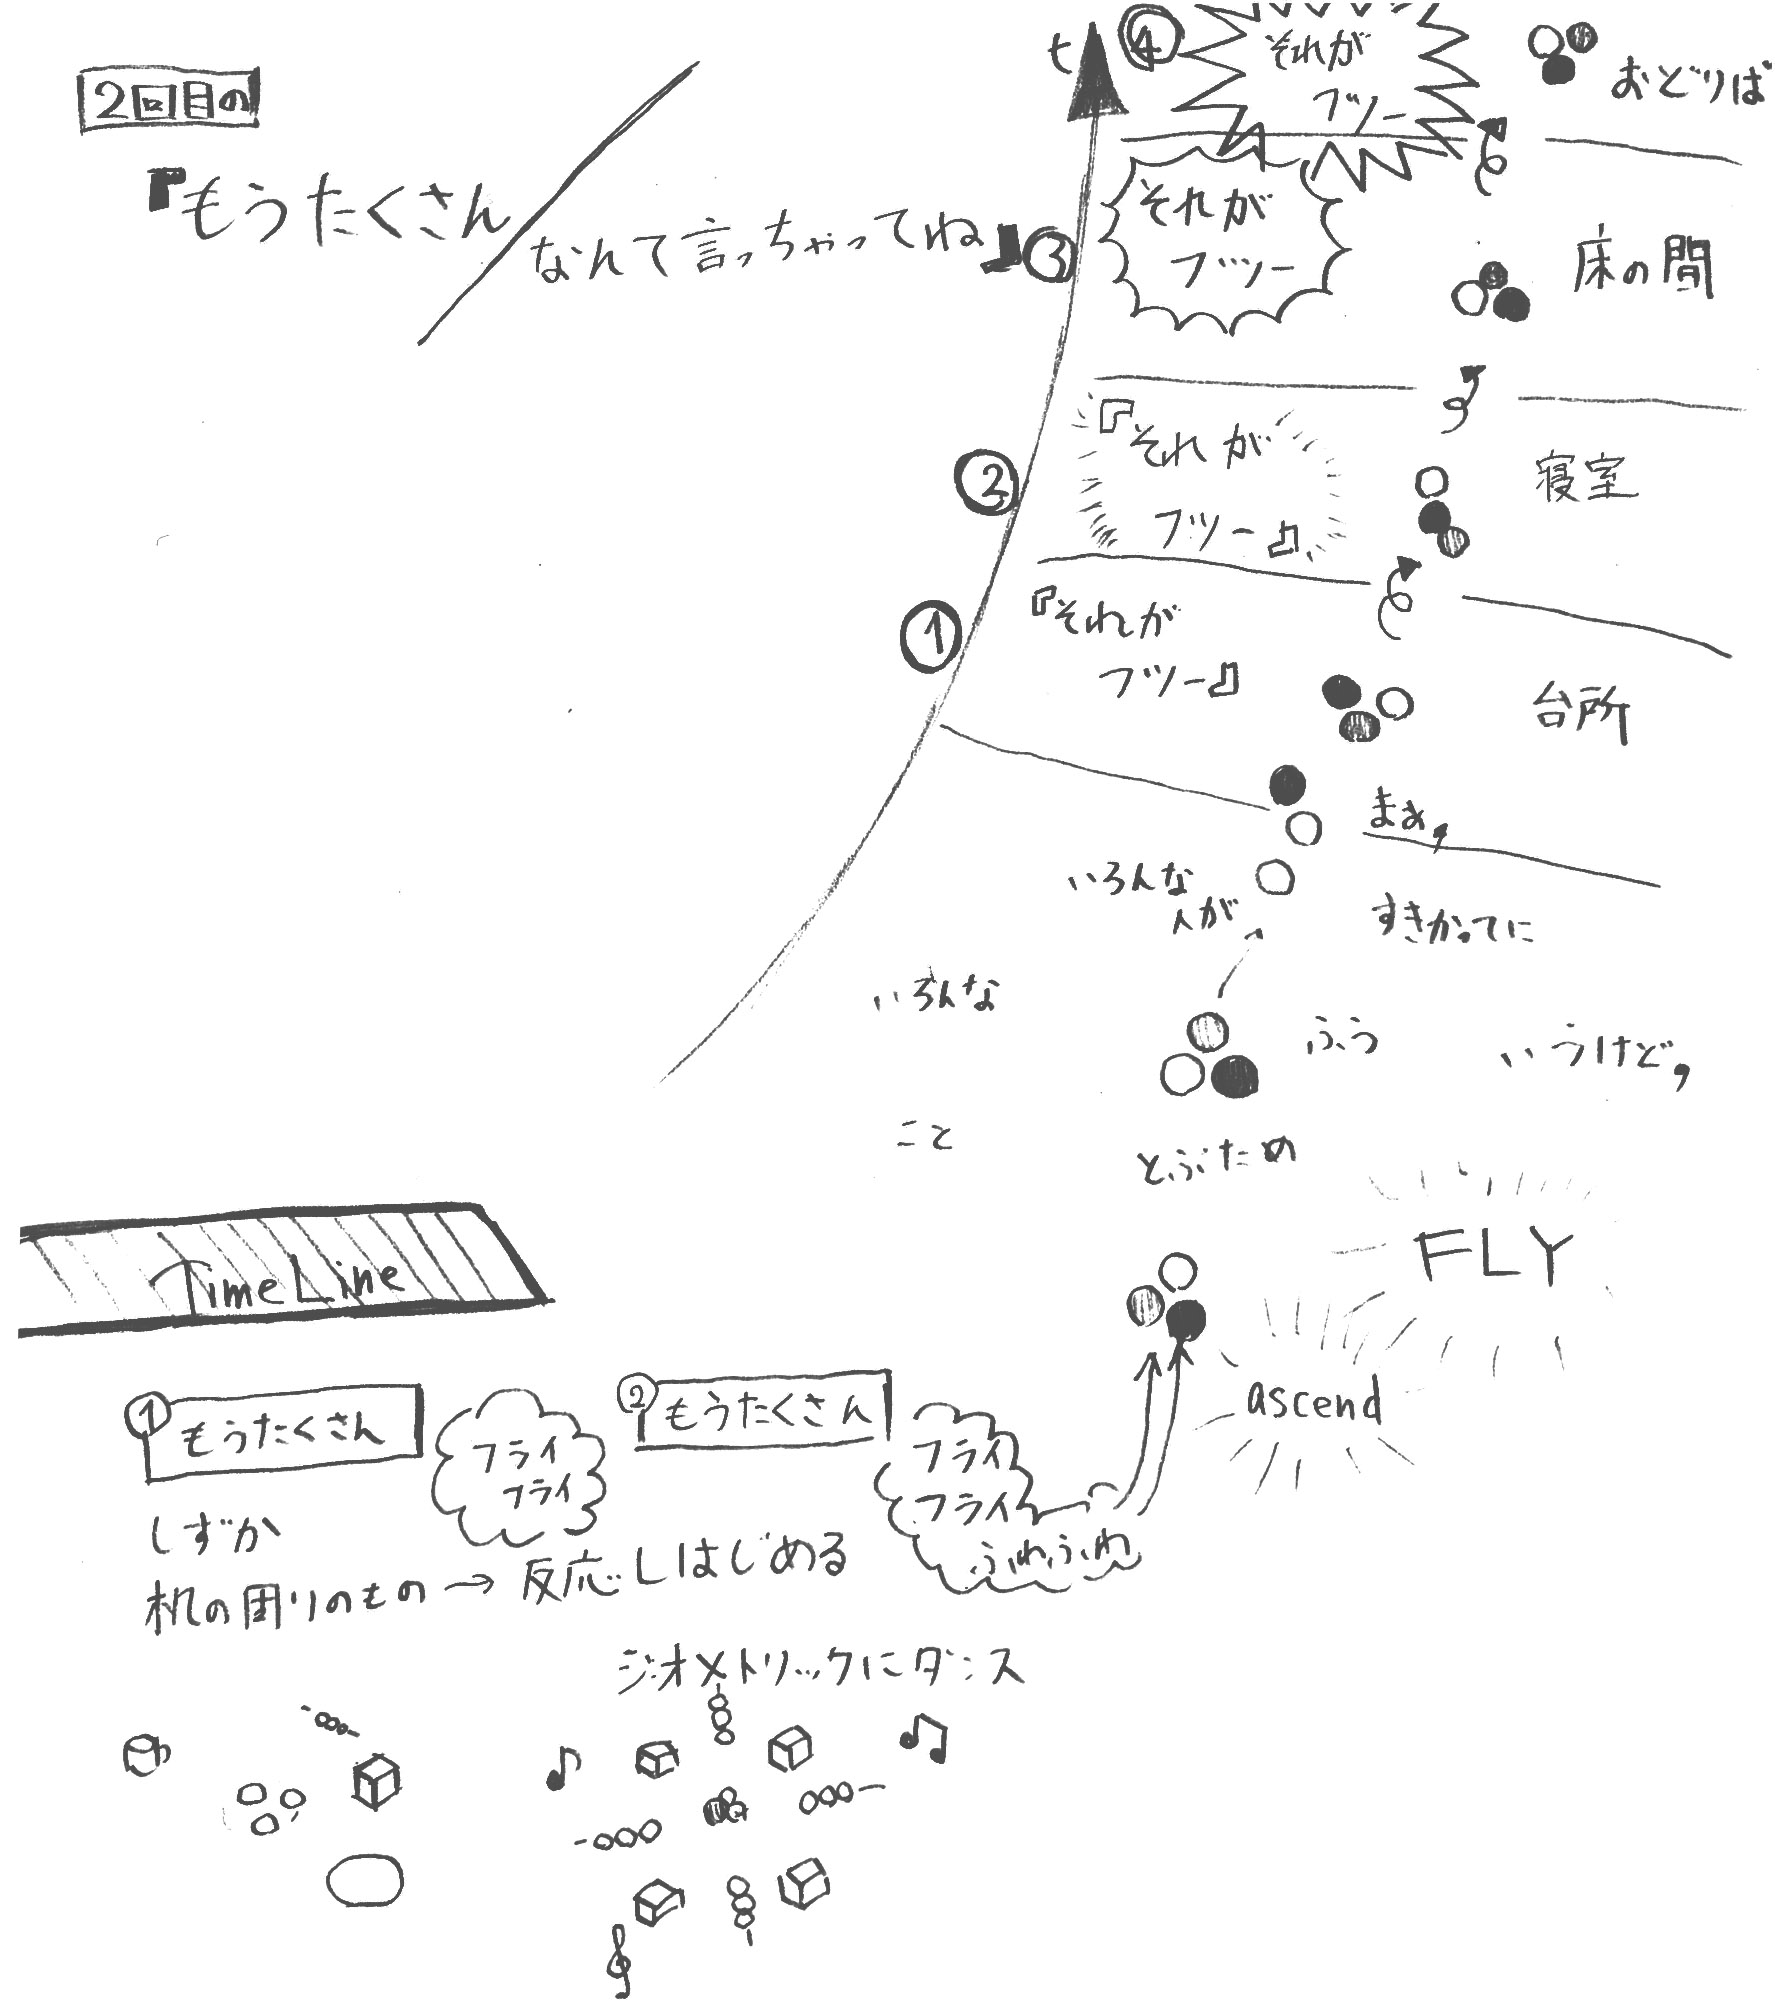 2回目の
『もうたくさん
なんて言っちゃってね』
t
④
それが
フツー
おどりば
③
それが
フツー
床の間
②
『それが
フツー』
寝室
①
『それが
フツー』
台所
まぁ,
いろんな
人が
すきかってに
いろんな
ふう
いうけど,
こと
とぶため
FLY
TimeLine
ascend
①
もうたくさん
フライ
フライ
②
もうたくさん
フライ
フライ
ふわふわ
しずか
机の周りのもの→反応しはじめる
ジオメトリックにダンス